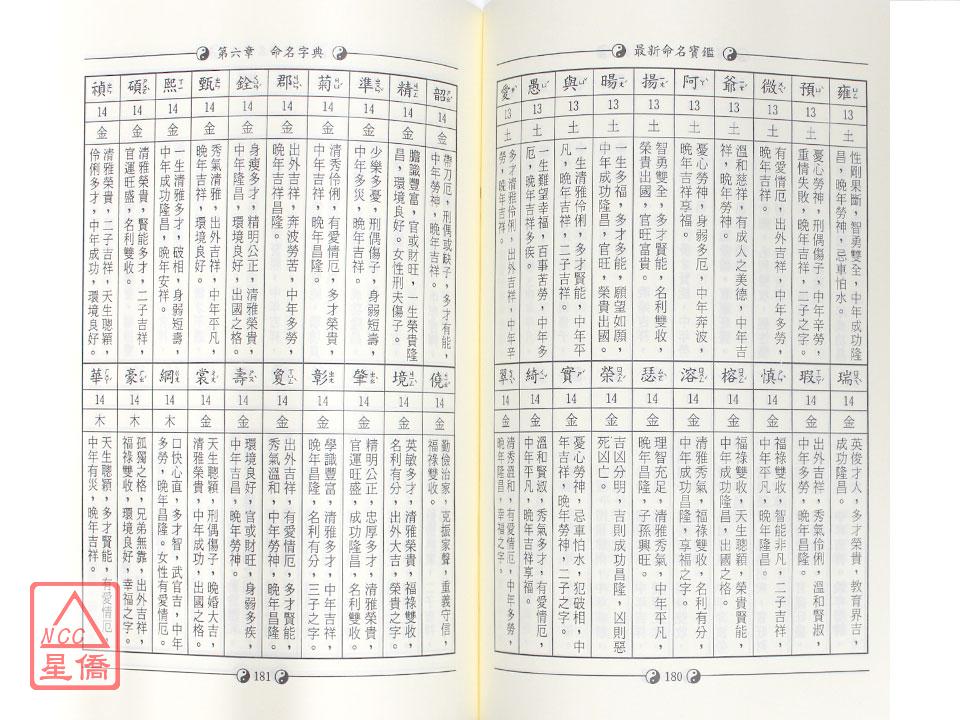 最新命名寶鑑
雍 13 土 性剛果斷，智勇雙全，中年成功隆昌，晚年勞神，忌車怕水。
預 13 土 憂心勞神，刑偶傷子，中年辛勞，重情失敗，晚年吉祥，二子之字。
微 13 土 有愛情厄，出外吉祥，中年多勞，晚年吉祥。
爺 13 土 溫和慈祥，有成人之美德，中年吉祥，晚年勞神。
阿 13 土 憂心勞神，身弱多厄，中年奔波，晚年吉祥享福。
揚 13 土 智勇雙全，多才賢能，名利雙收，榮貴出國，官旺富貴。
暘 13 土 一生多福，多才多能，願望如願，中年成功隆昌，官旺，榮貴出國。
與 13 土 一生清雅伶俐，多才賢能，中年平凡，晚年吉祥，二子吉祥。
愚 13 土 一生難望幸福，百事苦勞，中年多厄，晚年吉祥多疾。
愛 13 土 多才清雅伶俐，出外吉祥，中年辛勞，晚年吉祥。
瑞 14 金 英俊才人，多才榮貴，教育界吉，成功隆昌。
瑕 14 金 出外吉祥，秀氣伶俐，溫和賢淑，中年多勞，晚年吉祥。
慎 14 金 福祿雙收，智能非凡，二子吉祥，中年平凡，晚年隆昌。
榕 14 金 福祿雙收，天生聰穎，榮貴賢能，中年成功隆昌，出國之格。
溶 14 金 清雅秀氣，福祿雙收，名利有分，中年成功隆昌，享福之字。
瑟 14 金 理智充足，清雅秀氣，中年平凡，晚年昌隆，子孫興旺。
榮 14 金 吉凶分明，吉則成功昌隆，凶則惡死凶亡。
實 14 金 憂心勞神，忌車怕水，犯破相，中年吉祥，晚年勞神，二子之字。
綺 14 金 溫和賢淑，秀氣多才，有愛情厄，中年平凡，晚年吉祥享福。
翠 14 金 清秀溫和，有愛情厄，中年多勞，晚年隆昌，幸福之字。
180
第六章 命名字典
韶 14 金 帶刀厄，刑偶或缺子，多才有能，中年勞神，晚年吉祥。
精 14 金 膽識豐富，官或財旺，一生榮貴隆昌，環境良好。女性刑夫傷子。
準 14 金 少樂多憂，刑偶傷子，身弱短壽，中年多災，晚年吉祥。
菊 14 金 清秀伶俐，有愛情厄，多才榮貴，中年吉祥，晚年昌隆。
郡 14 金 出外吉祥，奔波勞苦，中年多勞，晚年吉祥昌隆。
銓 14 金 身瘦多才，精明公正，清雅榮貴，中年隆昌，環境良好，出國之格。
甄 14 金 秀氣清雅，出外吉祥，中年平凡，晚年吉祥，環境良好。
熙 14 金 一生清雅多才，破相，身弱短壽，中年成功隆昌，晚年安祥。
碩 14 金 清雅榮貴，賢能多才，二子吉祥，官運旺盛，名利雙收。
禎 14 金 清雅榮貴，二子吉祥，天生聰穎，伶俐多才，中年成功，環境良好。
僥 14 金 勤儉治家，克振家聲，重義守信，福祿雙收。
境 14 金 英敏多才，清雅榮貴，福祿雙收，名利有分，出外大吉，榮貴之字。
肇 14 金 精明公正，忠厚多才，清雅榮貴，官運旺盛，成功隆昌，名利雙收。
彰 14 金 學識豐富，清雅多才，中年成功，晚年昌隆，名利有分，三子之字。
夐 14 金 出外吉祥，有愛情厄，多才賢能，秀氣溫和，中年勞神，晚年昌隆。
壽 14 金 環境良好，官或財旺，身弱多疾，中年吉昌，晚年勞神。
裳 14 金 天生聰穎，刑偶傷子，晚婚大吉，清雅榮貴，中年成功，出國之格。
綱 14 木 口快心直，多才智，武官吉，中年多勞，晚年昌隆。女性有愛情厄。
豪 14 木 孤獨之格，兄弟無靠，出外吉祥，福祿雙收，環境良好，幸福之字。
華 14 木 天生聰穎，多才賢能，有愛情厄，中年有災，晚年吉祥。
181
NCC
星僑